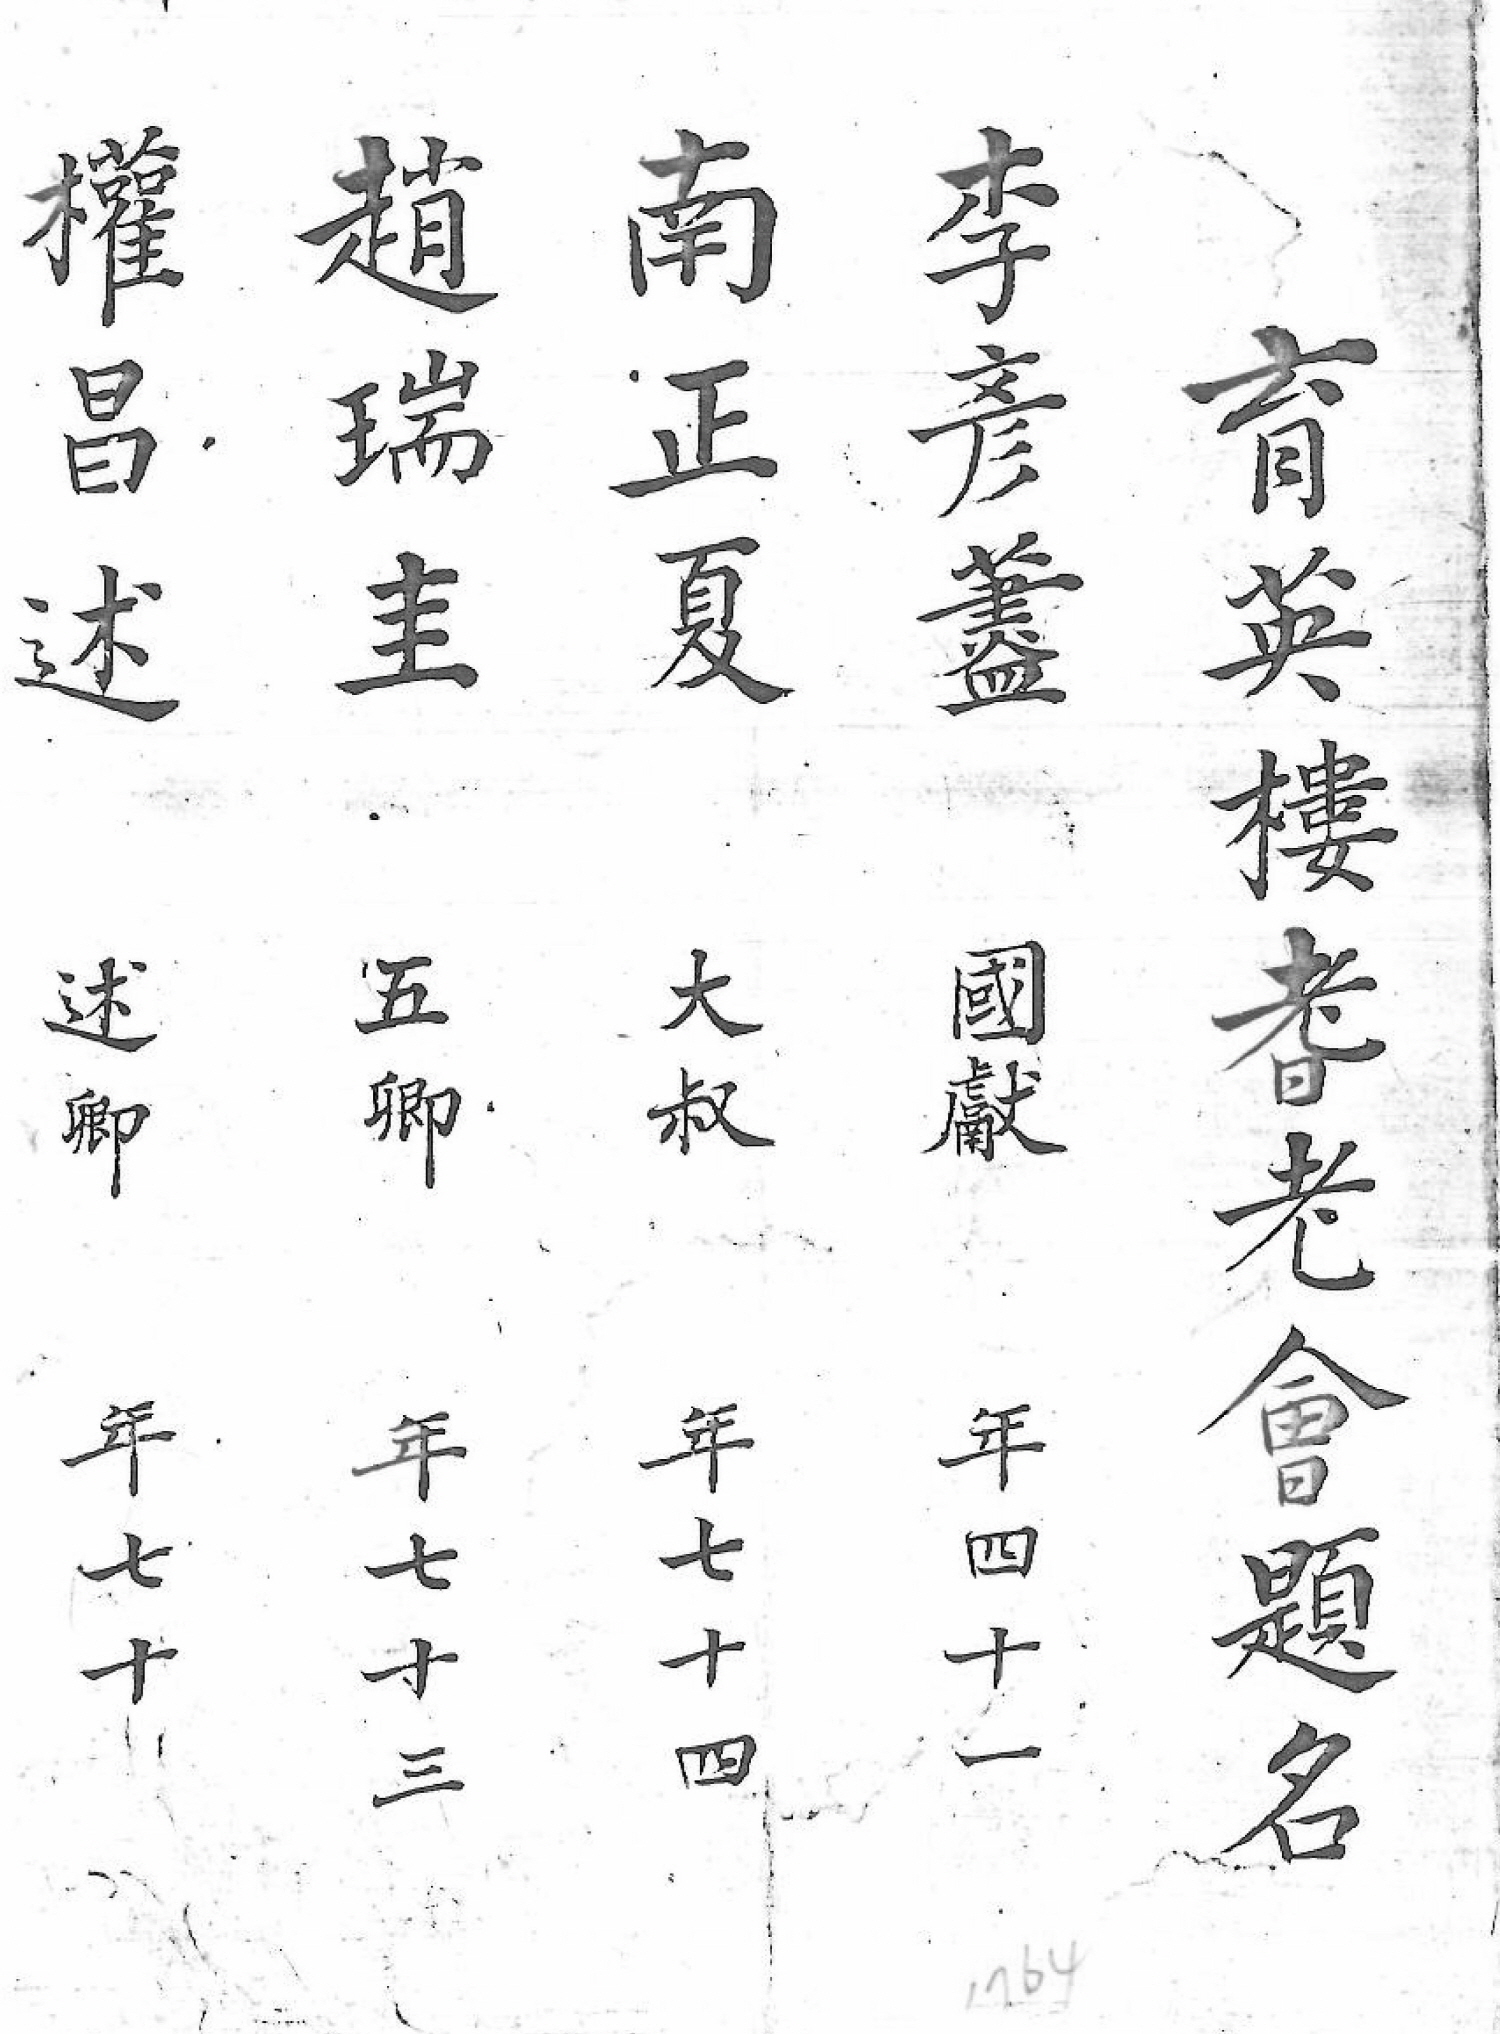 育英樓耆老會題名
李彦藎 國獻 年四十一
南正夏 大叔 年七十四
趙瑞圭 五卿 年七十三
權昌述 述卿 年七十
1764